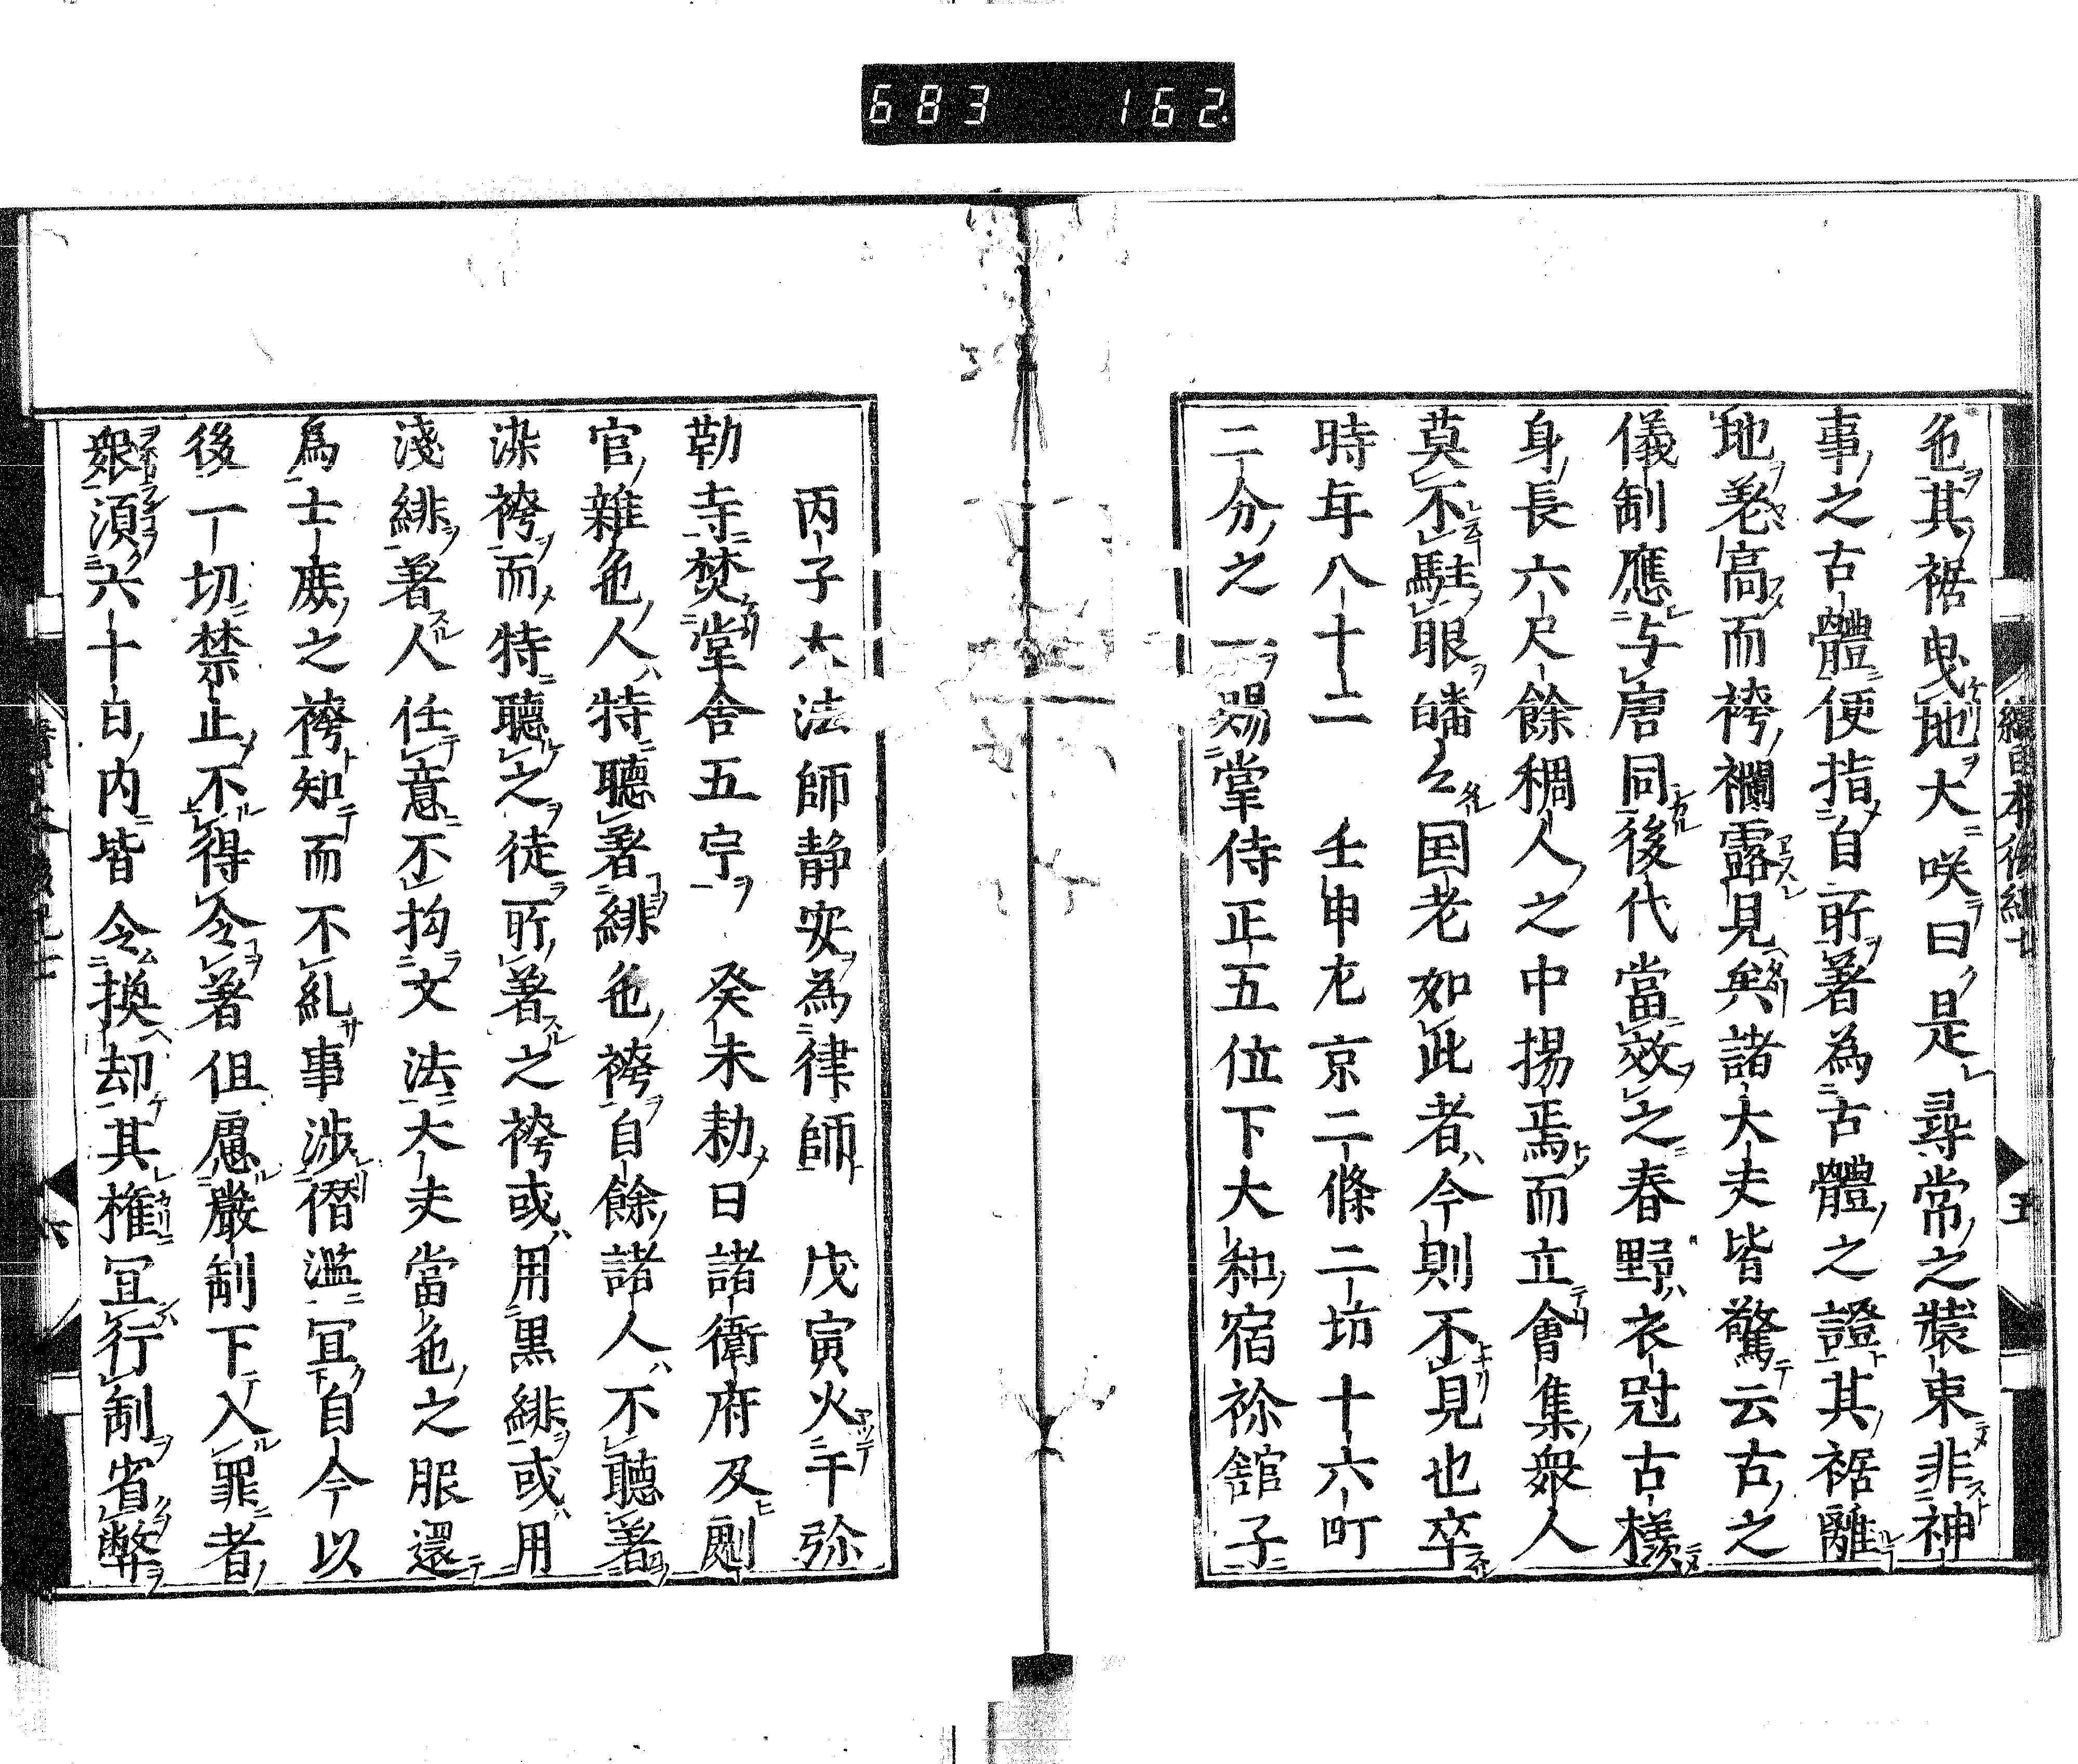 683 162
色其裾曳地大咲曰是尋常之裝束非神
事之古體便指自所著為古體之證其裾離
地差高而袴襴露見矣諸大夫皆驚云古之
儀制應与唐同後代當效之春野衣冠古樣
身長六尺餘稠人之中揚焉而立會集衆人
莫不駐眼皤々国老如此者今則不見也卒
時年八十二 壬申左京二條二坊十六町
二分之一賜掌侍正五位下大和宿祢舘子
丙子大法師静安為律師 戊寅火于弥
勒寺焚堂舍五宇 癸未勅曰諸衛府及劇
官雜色人特聽著緋色袴自餘諸人不聽著
染袴而特聽之徒所著之袴或用黒緋或用
淺緋著人任意不拘文法大夫當色之服還
爲士庶之袴知而不糺事涉僭濫冝自今以
後一切禁止不得令著但慮嚴制下入罪者
衆須六十日内皆令換却其権冝行制省弊
五
六